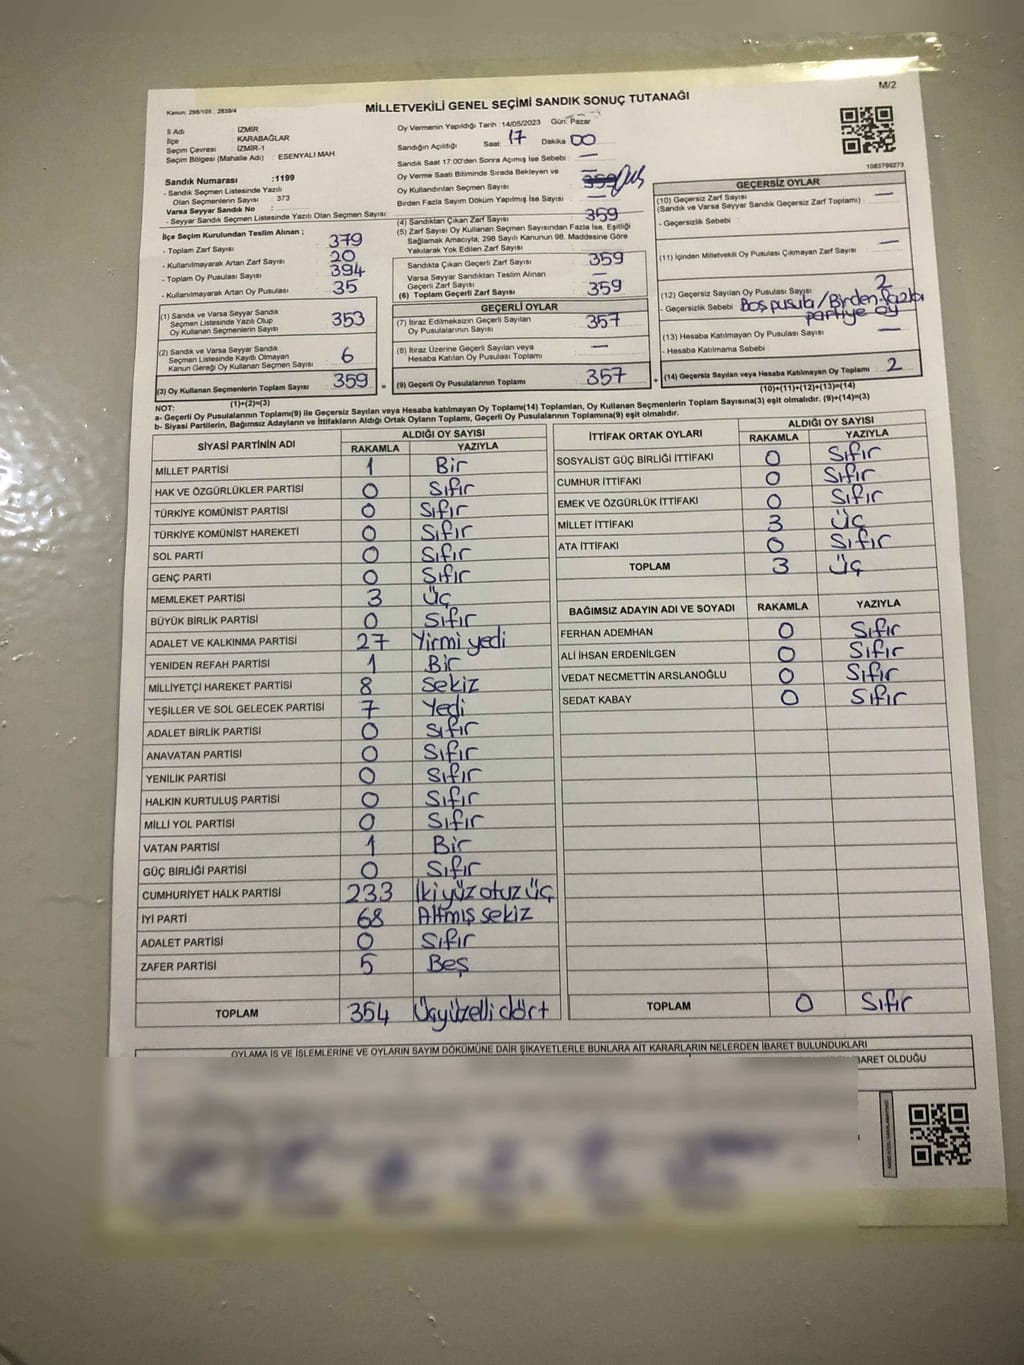 M/2
Kanun: 298/105 , 2839/4
MİLLETVEKİLİ GENEL SEÇİMİ SANDIK SONUÇ TUTANAĞI
İl Adı : İZMİR
İlçe : KARABAĞLAR
Seçim Çevresi : İZMİR-1
Seçim Bölgesi (Mahalle Adı) : ESENYALI MAH.
Sandık Numarası :1199
- Sandık Seçmen Listesinde Yazılı
Olan Seçmenlerin Sayısı : 373
Varsa Seyyar Sandık No :
- Seyyar Sandık Seçmen Listesinde Yazılı Olan Seçmen Sayısı:
Oy Vermenin Yapıldığı Tarih : 14/05/2023 Gün: Pazar
Sandığın Açıldığı Saat: 17 Dakika 00
Sandık Saat 17:00'den Sonra Açılmış İse Sebebi : —
Oy Verme Saati Bitiminde Sırada Bekleyen ve
Oy Kullandırılan Seçmen Sayısı :
Birden Fazla Sayım Döküm Yapılmış İse Sayısı : —
İlçe Seçim Kurulundan Teslim Alınan ;
- Toplam Zarf Sayısı : 379
- Kullanılmayarak Artan Zarf Sayısı : 20
- Toplam Oy Pusulası Sayısı : 394
- Kullanılmayarak Artan Oy Pusulası : 35
(1) Sandık ve Varsa Seyyar Sandık
Seçmen Listesinde Yazılı Olup
Oy Kullanan Seçmenlerin Sayısı : 353
(2) Sandık ve Varsa Seyyar Sandık
Seçmen Listesinde Kayıtlı Olmayan
Kanun Gereği Oy Kullanan Seçmen Sayısı : 6
(3) Oy Kullanan Seçmenlerin Toplam Sayısı : 359 =
(1)+(2)=(3)
(4) Sandıktan Çıkan Zarf Sayısı : 359
(5) Zarf Sayısı Oy Kullanan Seçmen Sayısından Fazla İse, Eşitliği
Sağlamak Amacıyla, 298 Sayılı Kanunun 98. Maddesine Göre
Yakılarak Yok Edilen Zarf Sayısı :
Sandıkta Çıkan Geçerli Zarf Sayısı : 359
Varsa Seyyar Sandıktan Teslim Alınan
Geçerli Zarf Sayısı : —
(6) Toplam Geçerli Zarf Sayısı : 359
GEÇERLİ OYLAR
(7) İtiraz Edilmeksizin Geçerli Sayılan
Oy Pusulalarının Sayısı : 357
(8) İtiraz Üzerine Geçerli Sayılan veya
Hesaba Katılan Oy Pusulası Toplamı : —
(9) Geçerli Oy Pusulalarının Toplamı : 357 +
1085798273
GEÇERSİZ OYLAR
(10) Geçersiz Zarf Sayısı
(Sandık ve Varsa Seyyar Sandık Geçersiz Zarf Toplamı) : —
- Geçersizlik Sebebi :
(11) İçinden Milletvekili Oy Pusulası Çıkmayan Zarf Sayısı : —
(12) Geçersiz Sayılan Oy Pusulası Sayısı : 2
- Geçersizlik Sebebi : Boş pusula/Birden fazla
partiye oy
(13) Hesaba Katılmayan Oy Pusulası Sayısı : —
- Hesaba Katılmama Sebebi :
(14) Geçersiz Sayılan veya Hesaba Katılmayan Oy Toplamı : 2
(10)+(11)+(12)+(13)=(14)
NOT:
a- Geçerli Oy Pusulalarının Toplamı(9) ile Geçersiz Sayılan veya Hesaba katılmayan Oy Toplamı(14) Toplamları, Oy Kullanan Seçmenlerin Toplam Sayısına(3) eşit olmalıdır. (9)+(14)=(3)
b- Siyasi Partilerin, Bağımsız Adayların ve İttifakların Aldığı Ortak Oyların Toplamı, Geçerli Oy Pusulalarının Toplamına(9) eşit olmalıdır.
SİYASİ PARTİNİN ADI ALDIĞI OY SAYISI
RAKAMLA YAZIYLA
MİLLET PARTİSİ 1 Bir
HAK VE ÖZGÜRLÜKLER PARTİSİ 0 Sıfır
TÜRKİYE KOMÜNİST PARTİSİ 0 Sıfır
TÜRKİYE KOMÜNİST HAREKETİ 0 Sıfır
SOL PARTİ 0 Sıfır
GENÇ PARTİ 0 Sıfır
MEMLEKET PARTİSİ 3 Üç
BÜYÜK BİRLİK PARTİSİ 0 Sıfır
ADALET VE KALKINMA PARTİSİ 27 Yirmi yedi
YENİDEN REFAH PARTİSİ 1 Bir
MİLLİYETÇİ HAREKET PARTİSİ 8 Sekiz
YEŞİLLER VE SOL GELECEK PARTİSİ 7 Yedi
ADALET BİRLİK PARTİSİ 0 Sıfır
ANAVATAN PARTİSİ 0 Sıfır
YENİLİK PARTİSİ 0 Sıfır
HALKIN KURTULUŞ PARTİSİ 0 Sıfır
MİLLİ YOL PARTİSİ 0 Sıfır
VATAN PARTİSİ 1 Bir
GÜÇ BİRLİĞİ PARTİSİ 0 Sıfır
CUMHURİYET HALK PARTİSİ 233 İkiyüz otuz üç
İYİ PARTİ 68 Altmış sekiz
ADALET PARTİSİ 0 Sıfır
ZAFER PARTİSİ 5 Beş
TOPLAM 354 Üçyüzelli dört
İTTİFAK ORTAK OYLARI ALDIĞI OY SAYISI
RAKAMLA YAZIYLA
SOSYALİST GÜÇ BİRLİĞİ İTTİFAKI 0 Sıfır
CUMHUR İTTİFAKI 0 Sıfır
EMEK VE ÖZGÜRLÜK İTTİFAKI 0 Sıfır
MİLLET İTTİFAKI 3 Üç
ATA İTTİFAKI 0 Sıfır
TOPLAM 3 Üç
BAĞIMSIZ ADAYIN ADI VE SOYADI RAKAMLA YAZIYLA
FERHAN ADEMHAN 0 Sıfır
ALİ İHSAN ERDENİLGEN 0 Sıfır
VEDAT NECMETTİN ARSLANOĞLU 0 Sıfır
SEDAT KABAY 0 Sıfır
TOPLAM 0 Sıfır
OYLAMA İŞ VE İŞLEMLERİNE VE OYLARIN SAYIM DÖKÜMÜNE DAİR ŞİKAYETLERLE BUNLARA AİT KARARLARIN NELERDEN İBARET BULUNDUKLARI
İBARET OLDUĞU